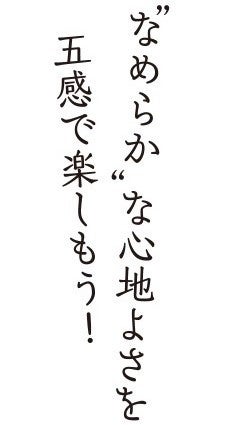 ”なめらか“な心地よさを
五感で楽しもう！